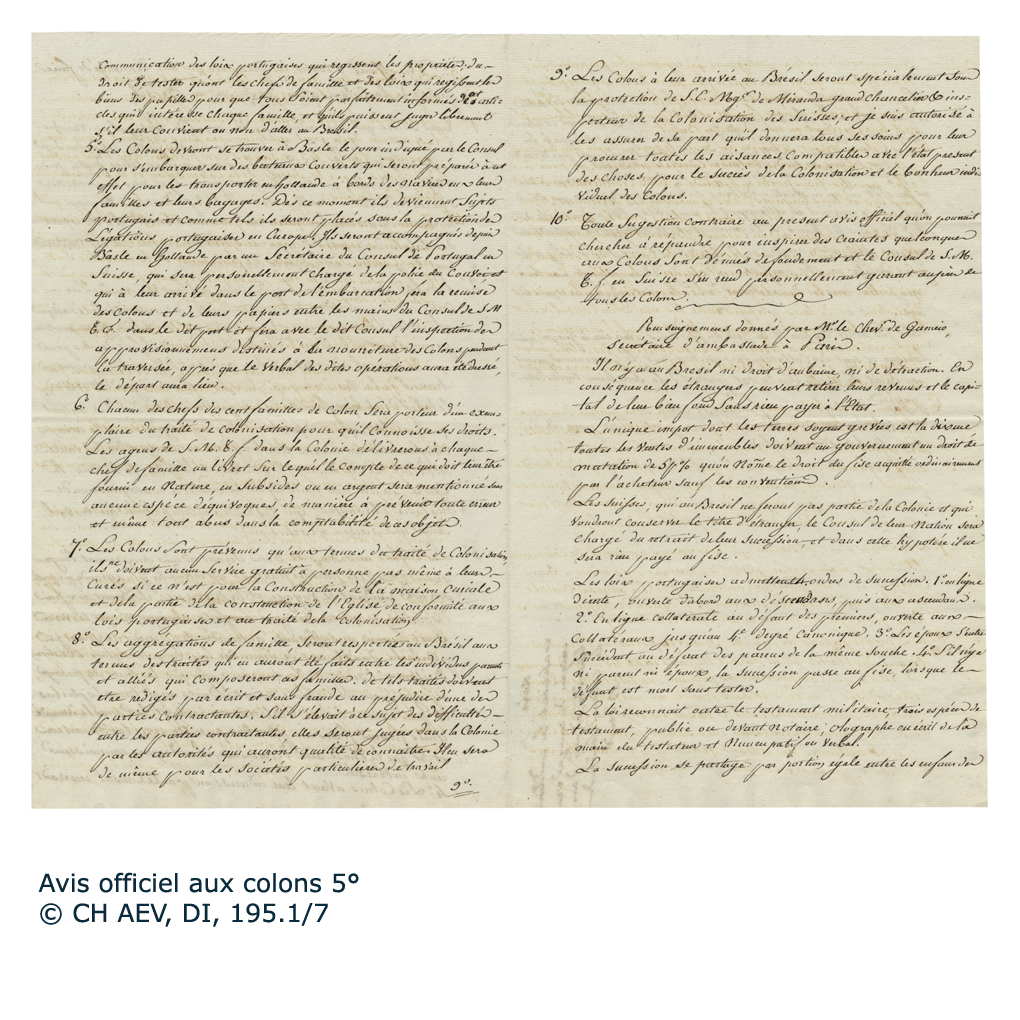 Communication des loix portugaises qui regissent les propriétés du
droit de tester qu'ont les chefs de famille et des loix qui regissent les
biens des pupilles pour que tous soient parfaitement informés des arti-
cles qui intéresse chaque famille, et qu'ils puissent juger librement
s'il leur Convient ou non d'aller au Bresil.
5.° Les Colons devront se trouver à Basle le jour indiqué par le Consul
pour s'embarquer sur des bateaux Couverts qui seront préparés à cet
effet pour les transporter en hollande à bords des navires eux leur
familles et leurs bagages. Dès ce moment ils deviennent Sujets
portugais et comme tels ils seront placés sous la protection des
Légations portugaises en Europe. Ils seront accompagnés depuis
Basle en hollande par un Sécrétaire du Consul de Portugal en
Suisse, qui sera personellement chargé de la police du Convoi et
qui à leur arrivé dans le port de l'embarcation fera la remise
des Colons et de leurs papiers entre les mains du Consul de S. M
T. F. dans le dit port et fera avec le dit Consul l'inspection des
approvisionnemens destinés à la nourriture des Colons pendant
la traversée, après que le Verbal des dites operations aura été dressé,
le départ aura lieu.
6.° Chacun des chefs des cent familles de Colon Sera porteur d'un exem-
plaire du traité de Colonisation pour qu'il Connoisse ses droits.
Les agens de S. M. T. f. dans la Colonie délivrerons à chaque
chef de famille un livret sur le quel le Compte de ce qui doit leur être
fourni en Nature, en Subsides ou en argent sera mentionné sans
aucune espéce d'équivoques, de manière à prévenir toute erreur
et même tout abus dans la comptabilité de ces objets.
7.° Les Colons sont prévenus qu'aux termes du traité de Colonisation,
ils ne doivent aucun Service gratuit à personne pas même à leurs
Curés si ce n'est pour la Construction de la maison Curiale
et de la partie de la construction de l'Eglise de conformité aux
lois portugaises et au traité de la Colonisation.
8.° Les aggrégations de famille, seront respectées au Brésil aux
termes des traités qui en auront été faits entre les individus parents
et alliés qui Composeront ces familles. de tels traités doivent
être redigés par écrit et sans fraude au préjudice d'une des
parties Contractantes. S'il s'élevait à ce sujet des difficultés
entre les parties contractantes, elles seront jugées dans la Colonie
par les autorités qui auront qualité de connaître. Il en sera
de même pour les Sociétés particulières de travail
9.°
9.° Les Colons à leur arrivée au Brésil seront spécialement sous
la protection de S. E. Mgr. de Miranda grand chancelier & ins-
pecteur de la Colonisation des Suisses, et je suis autorisé à
les assurer de sa part qu'il donnera tous ses soins pour leur
procurer toutes les aisances, Compatibles avec l'état present
des choses, pour le succès de la Colonisation et le bonheur indi-
viduel des Colons.
10.° Toute Sugestion contraire au present avis officiel qu'on pourrait
chercher à répandre pour inspirer des Craintes quelconques
aux Colons sont dénués de fondement et le Consul de S. M.
T. f. en Suisse s'en rend personnellement garant auprès de
tous les Colons.
Renseignemens donnés par Mr. le Chevr. de
secrétaire d'ambassade à Paris.
Il n'y a au Bresil ni droit d'aubaine, ni de détraction. En
conséquence les étrangers peuvent retirer leurs revenus et le capi-
tal de leur bien fond sans rien payer à l'Etat.
L'unique impot dont les terres soyent grévées est la dixme
toutes les Ventes d'immeubles doivent au gouvernement un droit de
mutation de 5 p% qu'on Nôme le droit du fisc acquitté ordinairement
par l'acheteur sauf les conventions.
Les suisses, qui au Bresil ne feront pas partie de la Colonie et qui
voudront conserver le titre d'étranger, le Consul de leur Nation sera
chargé du retrait de leur succession, et dans cette hypotése il ne
sera rien payé au fisc.
Les loix portugaises admettent ordres de sucession. 1.° en ligne
directe, ouverte d'abord aux désendans, puis aux ascendans.
2.° En ligne collaterale au défaut des premiers, ouverte aux
Collatéraux jusqu'au 4.e degré Canonique. 3.° Les epoux s'entre
Succédent au défaut des parens de la même Souche. 4.° S'il n'y a
ni parent ni époux, la sucession passe au fisc, lorsque le
défunt est mort sans tester.
La loi reconnait outre le testament militaire, trois espèces de
testament, publie ou devant notaire, olographe ou écrit de la
main du testateur et Nuncupatif ou Verbal.
La sucession se partage par portion egale entre les enfans des
Avis officiel aux colons 5°
© CH AEV, DI, 195.1/7